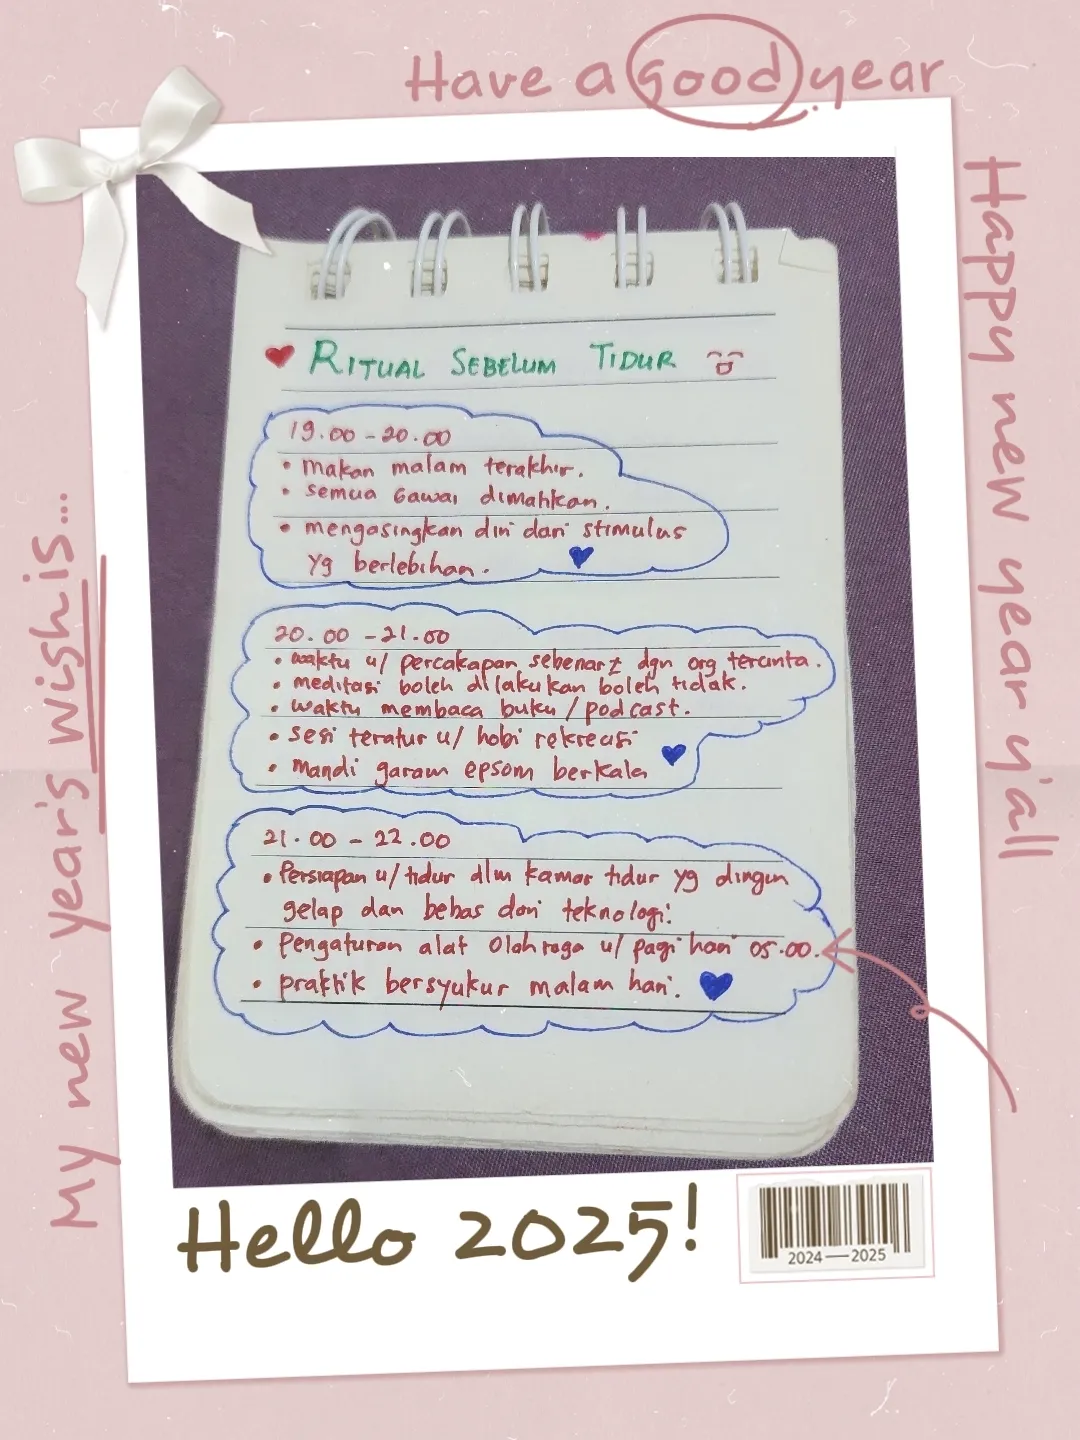 Have a Good year
Happy new year y'all
My new year's wish is...
RITUAL SEBELUM TIDUR
19.00 - 20.00
• makan malam terakhir.
• semua Gawai dimahkan.
• mengasingkan diri dari stimulus
yg berlebihan.
20.00 - 21.00
• waktu u/ percakapan sebenarz dgn org tercinta.
• meditasi boleh dilakukan boleh tidak.
• waktu membaca buku / podcast.
• sesi teratur u/ hobi rekreasi
• Mandi garam epsom berkala
21.00 - 22.00
• Persiapan u/ tidur dlm kamar tidur yg dingin
gelap dan bebas dari teknologi.
• Pengaturan alat olahraga u/ pagi hari 05.00.
• praktik bersyukur malam hari.
Hello 2025!
2024 — 2025